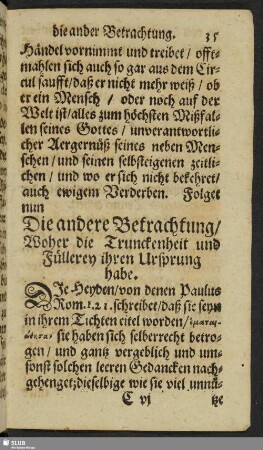 die ander Betrachtung. 35
Händel vornimmt und treibet / offt-
mahlen sich auch so gar aus dem Cir-
cul saufft / daß er nicht mehr weiß / ob
er ein Mensch / oder noch auf der
Welt ist / alles zum höchsten Mißfal-
len seines Gottes / unverantwortli-
cher Aergernüß seines neben Men-
schen / und seinen selbsteigenen zeitli-
chen / und wo er sich nicht bekehret /
auch ewigem Verderben. Folget
nun
Die andere Betrachtung /
Woher die Trunckenheit und
Füllerey ihren Ursprung
habe.
DIe Heyden / von denen Paulus
Rom. 1.21. schreibet / daß sie seyn
in ihrem Tichten eitel worden /
sie haben sich selber recht betro-
gen / und gantz vergeblich und um-
sonst solchen leeren Gedancken nach-
gehenget; dieselbige wie sie viel unnü-
C vj tze
SLUB